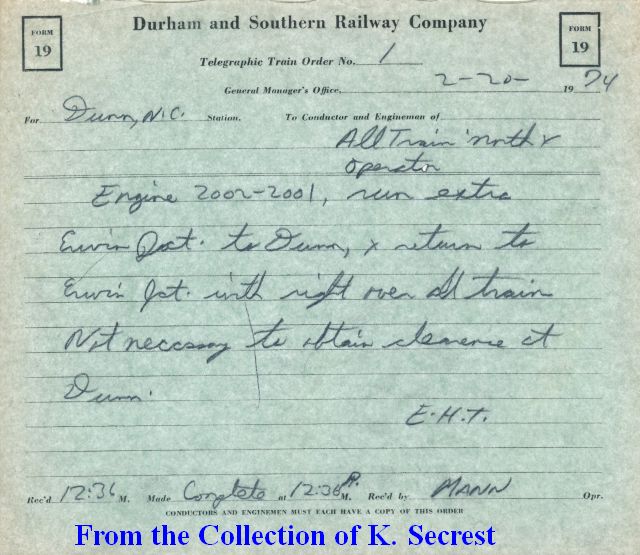 FORM 19
Durham and Southern Railway Company
FORM 19
Telegraphic Train Order No. 1
General Manager's Office, 2-20- 1974
For Dunn, N.C. Station. To Conductor and Engineman of
All Train north &
operator
Engine 2002-2001, run extra
Erwin Jct. to Dunn, & return to
Erwin Jct. with right over all train
Not necessary to obtain clearence at
Dunn.
E.H.T.
Rec'd 12:36 M. Made Complete at 12:36 P. M. Rec'd by MANN Opr.
CONDUCTORS AND ENGINEMEN MUST EACH HAVE A COPY OF THIS ORDER
From the Collection of K. Secrest